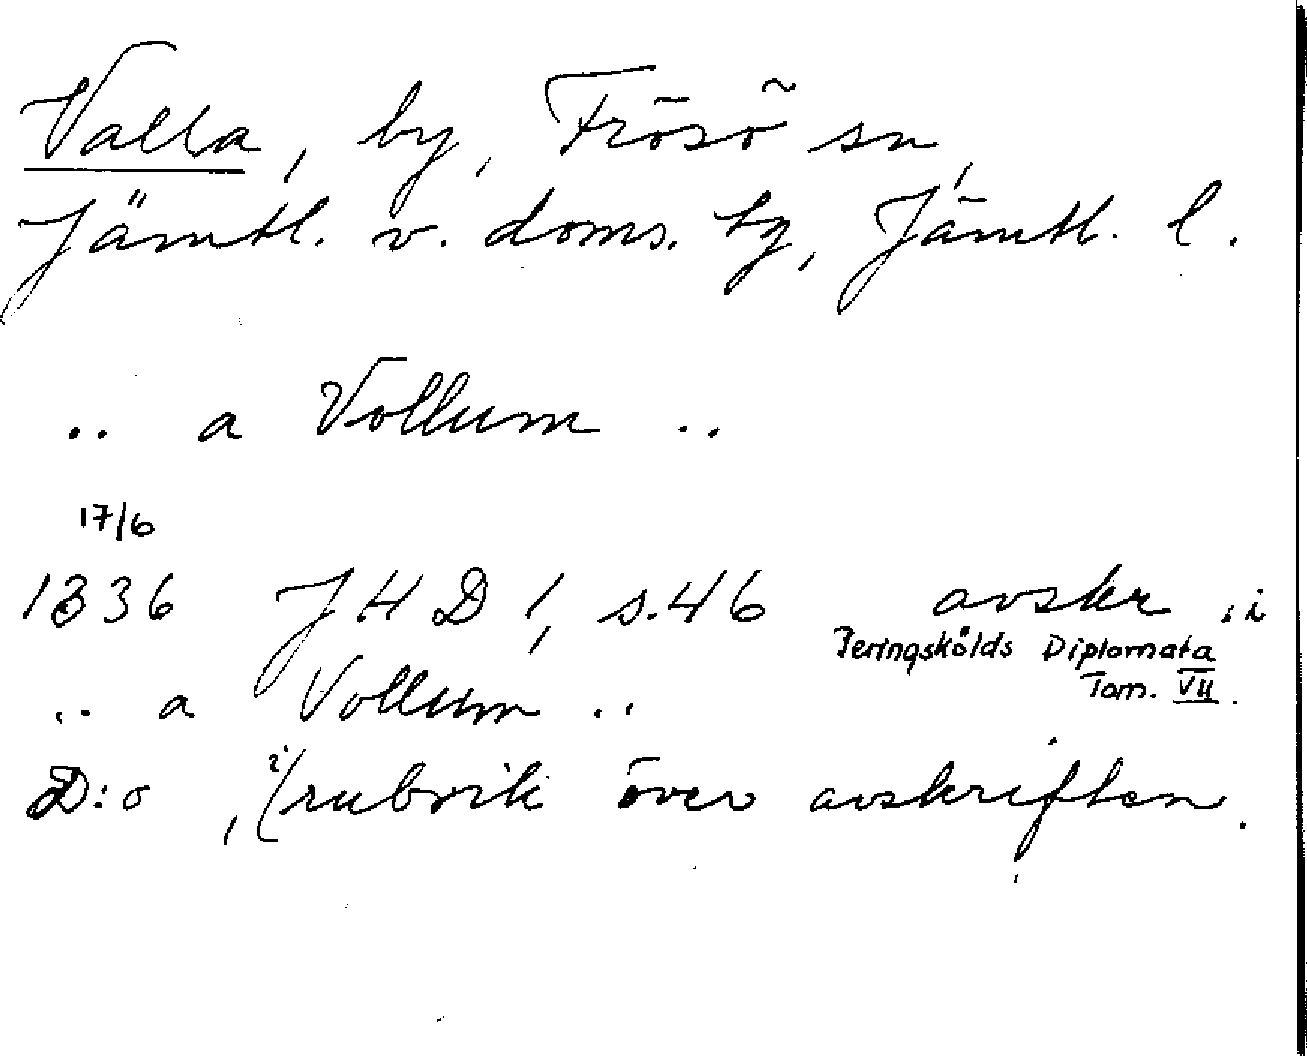 Valla, by, Frösö sn,
Jämtl. v. doms. tg, Jämtl. l.
.. a Vollum ..
17/6
1336 JHD 1, s.46 avskr. i
Peringskölds Diplomata
Tom. VII.
.. a Vollum ..
D:o, i rubrik över avskriften.